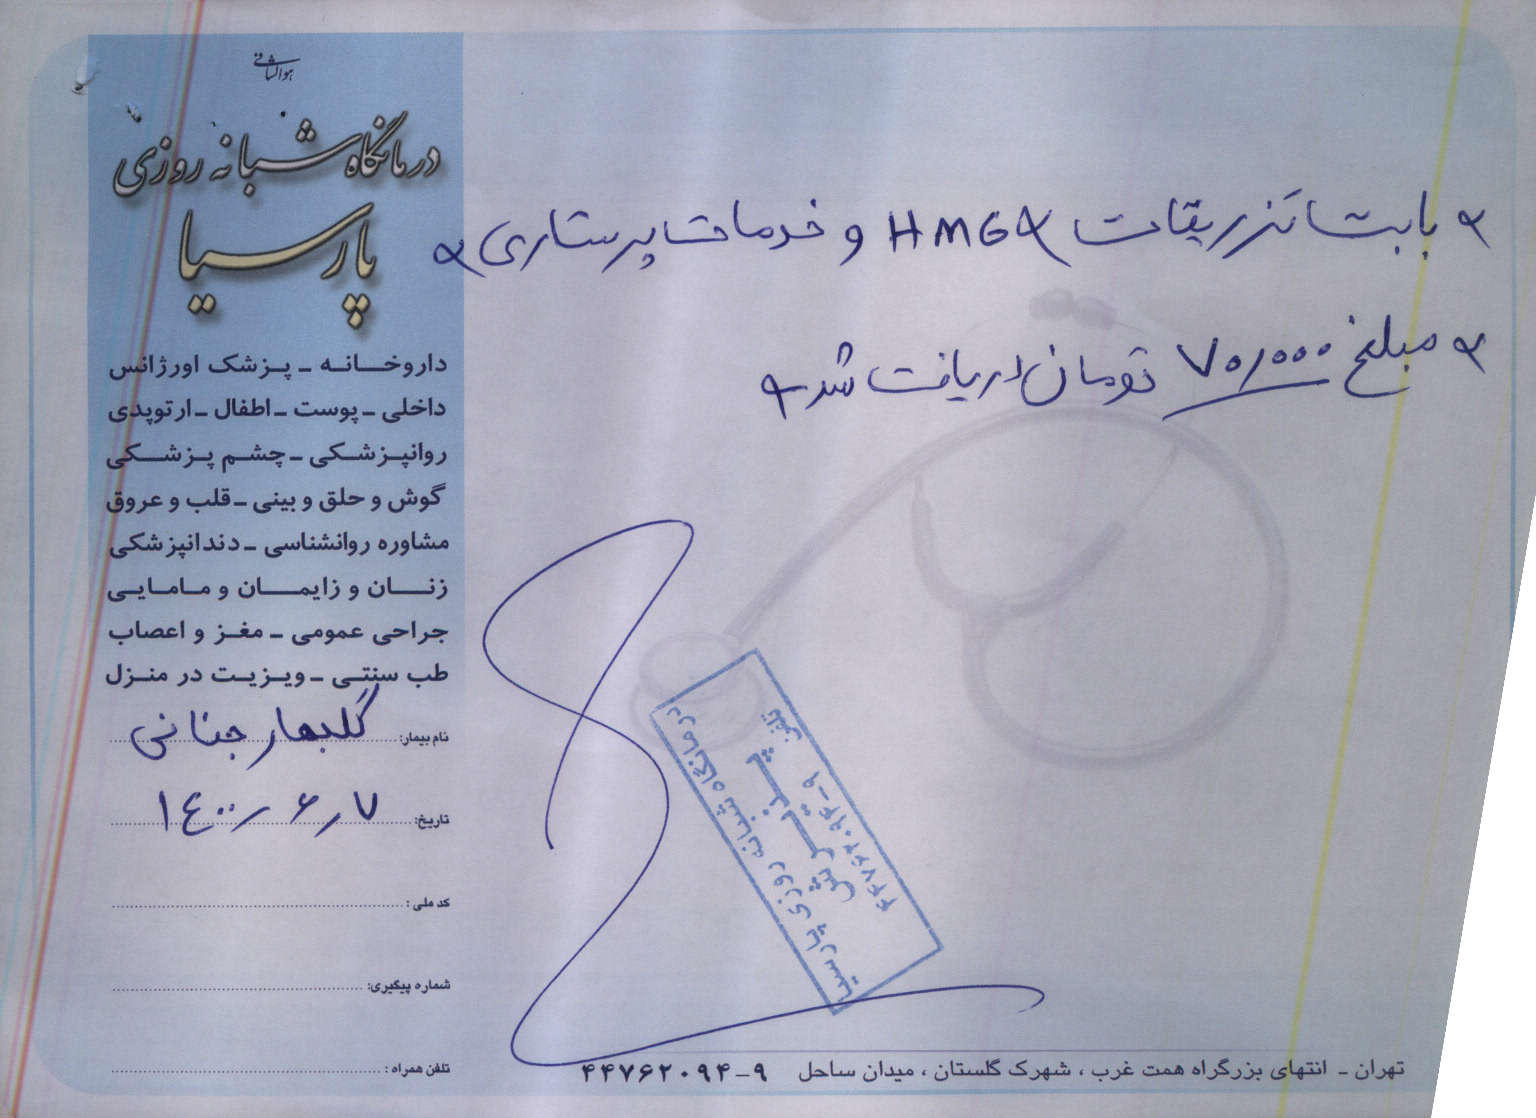 هوالشافی
درمانگاه شبانه روزی
پارسیا
داروخانه - پزشک اورژانس
داخلی - پوست - اطفال - ارتوپدی
روانپزشکی - چشم پزشکی
گوش و حلق و بینی - قلب و عروق
مشاوره روانشناسی - دندانپزشکی
زنان و زایمان و مامایی
جراحی عمومی - مغز و اعصاب
طب سنتی - ویزیت در منزل
نام بیمار: گلبهار جنانی
تاریخ: ۱۴۰۰/۶/۷
کد ملی:
شماره پیگیری:
تلفن همراه:
بابت تزریقات HMG و خدمات پرستاری
مبلغ ۷۰/۰۰۰ تومان دریافت شد
درمانگاه شبانه روزی پارسیا
پذیرش
تلفن
۴۴۷۶۲۰۹۴-۹
تهران - انتهای بزرگراه همت غرب ، شهرک گلستان ، میدان ساحل ۹-۴۴۷۶۲۰۹۴